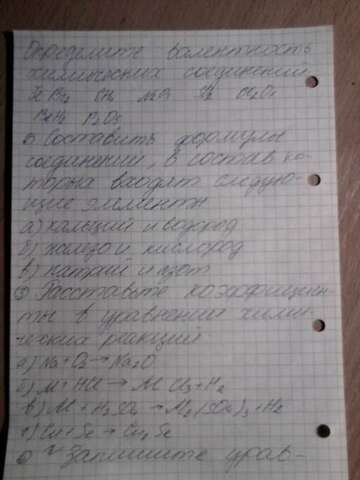 Определите валентность
химических соединений
P₂O₅
② Составить формулы
соединений, в состав ко-
торых входят следую-
щие элементы
а) кальций и водород
б) железо и кислород
в) натрий и азот
③ Расставьте коэффициен-
ты в уравнении хими-
ческих реакций
а) Na + O₂ → Na₂O
б) Al + HCl → AlCl₃ + H₂
в) Al + H₂SO₄ → Al₂(SO₄)₃ + H₂
г) Cu + Se → Cu₂Se
Запишите урав-